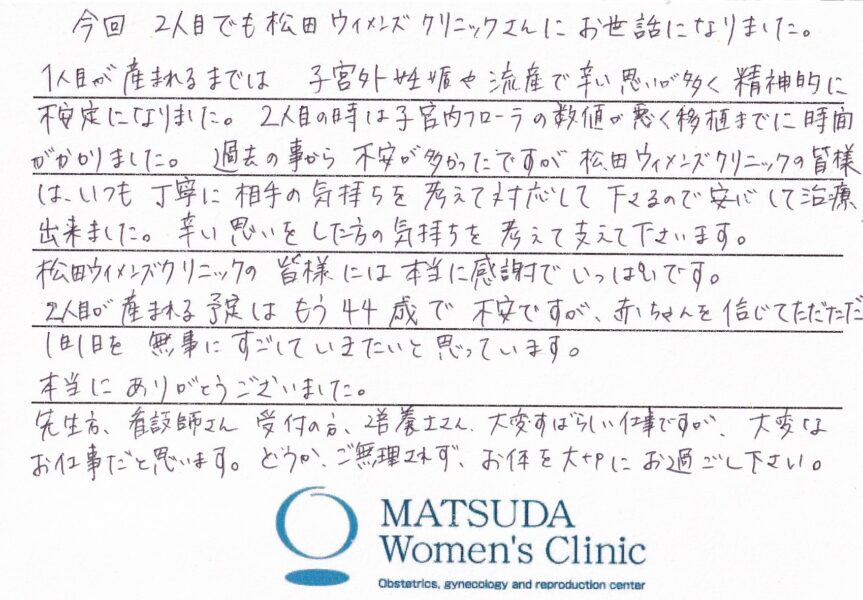 今回 2人目でも松田ウィメンズクリニックさんにお世話になりました。
1人目が産まれるまでは 子宮外妊娠や流産で辛い思いが多く精神的に
不安定になりました。2人目の時は子宮内フローラの数値が悪く移植までに時間
がかかりました。過去の事から不安が多かったですが松田ウィメンズクリニックの皆様
は、いつも丁寧に相手の気持ちを考えて対応して下さるので安心して治療
出来ました。辛い思いをした方の気持ちを考えて支えて下さいます。
松田ウィメンズクリニックの皆様には本当に感謝でいっぱいです。
2人目が産まれる予定はもう44歳で不安ですが、赤ちゃんを信じてただただ
1日1日を無事にすごしていきたいと思っています。
本当にありがとうございました。
先生方、看護師さん 受付の方、培養士さん、大変すばらしい仕事ですが、大変な
お仕事だと思います。どうか、ご無理されず、お体を大切にお過ごし下さい。
MATSUDA
Women's Clinic
Obstetrics, gynecology and reproduction center